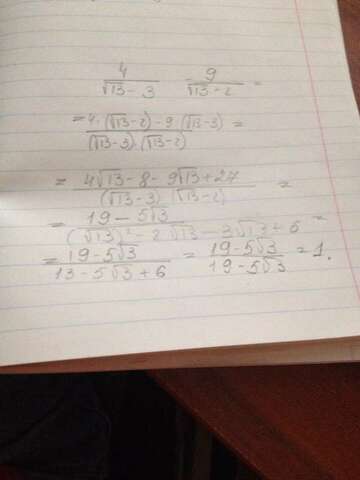 4/(√13 - 3) - 9/(√13 - 2) =
= (4·(√13 - 2) - 9·(√13 - 3))/((√13 - 3)·(√13 - 2)) =
= (4√13 - 8 - 9√13 + 27)/((√13 - 3)·(√13 - 2)) =
= (19 - 5√3)/((√13)² - 2√13 - 3√13 + 6) =
= (19 - 5√3)/(13 - 5√3 + 6) = (19 - 5√3)/(19 - 5√3) = 1.